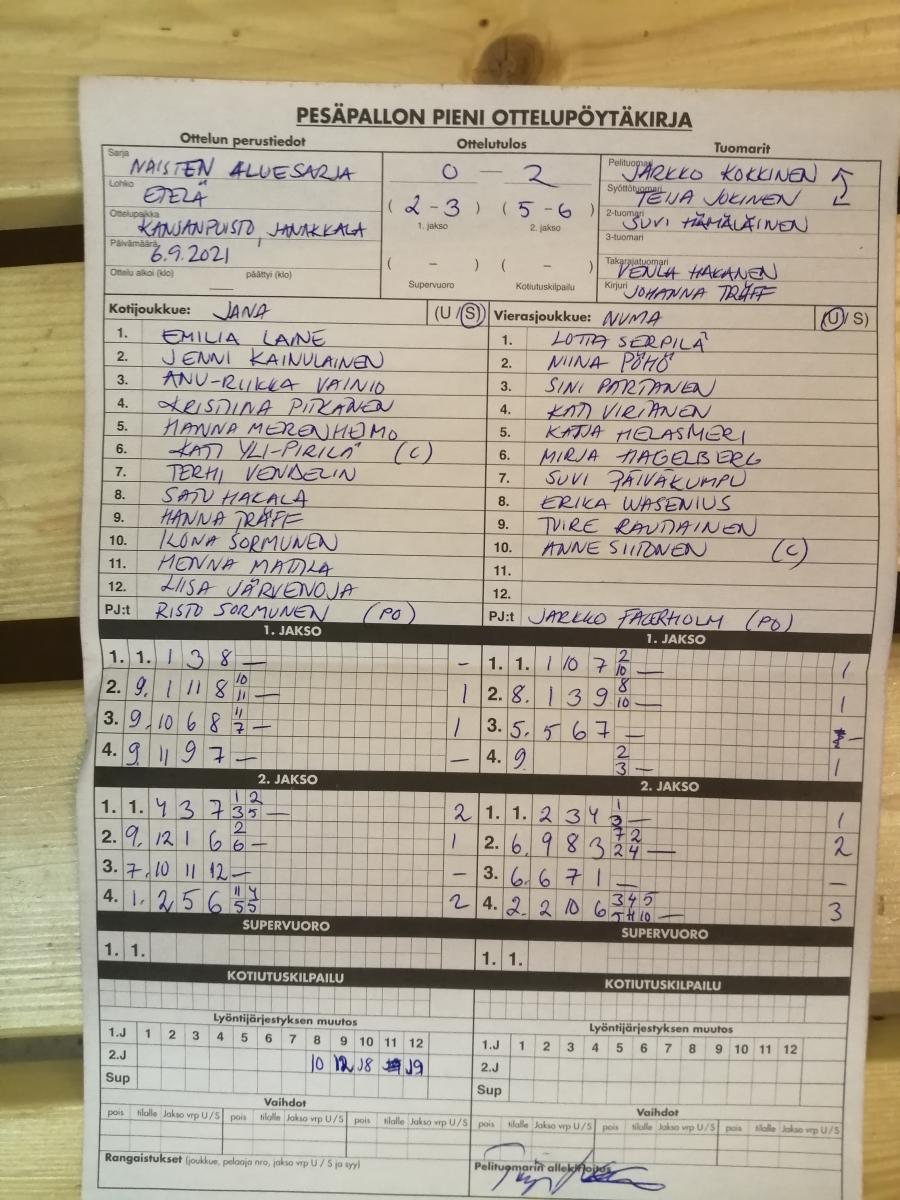 PESÄPALLON PIENI OTTELUPÖYTÄKIRJA
Ottelun perustiedot Ottelutulos Tuomarit
Sarja NAISTEN ALUESARJA
Lohko ETELÄ
Ottelupaikka KANSANPUISTO, JANAKKALA
Päivämäärä 6.9.2021
Ottelu alkoi (klo) — päättyi (klo)
0 — 2
( 2-3 ) ( 5-6 )
1. jakso 2. jakso
( - ) ( - )
Supervuoro Kotiutuskilpailu
Pelituomari JARKKO KOKKINEN
Syöttötuomari TEIJA JOKINEN
2-tuomari SUVI HÄMÄLÄINEN
3-tuomari
Takarajatuomari VENLA HAKANEN
Kirjuri JOHANNA TRÄFF
Kotijoukkue: JANA (U / S)
1. EMILIA LAINE
2. JENNI KAINULAINEN
3. ANU-RIIKKA VAINIO
4. KRISTIINA PITKÄNEN
5. HANNA MERENHEIMO
6. KATI YLI-PIRILÄ (C)
7. TERHI VENDELIN
8. SATU HAKALA
9. HANNA TRÄFF
10. ILONA SORMUNEN
11. HENNA MATTILA
12. LIISA JÄRVENOJA
PJ:t RISTO SORMUNEN (PO)
Vierasjoukkue: NUMA (U / S)
1. LOTTA SERPILÄ
2. NIINA PÖHÖ
3. SINI PARTANEN
4. KATI VIRTANEN
5. KATJA HELASMERI
6. MIRJA HAGELBERG
7. SUVI PÄIVÄKUMPU
8. ERIKA WASENIUS
9. TUIRE RAUTIAINEN
10. ANNE SIITONEN (C)
11.
12.
PJ:t JARKKO FAGERHOLM (PO)
1. JAKSO
1. 1. 1 3 8 — -
2. 9. 1 11 8 10 11 — 1
3. 9. 10 6 8 11 7 — 1
4. 9. 11 9 7 — -
1. JAKSO
1. 1. 1 10 7 2 10 — 1
2. 8. 1 3 9 8 10 — 1
3. 5. 5 6 7 — -
4. 9. 2 3 — 1
2. JAKSO
1. 1. 4 3 7 1 2 3 5 — 2
2. 9. 12 1 6 2 6 — 1
3. 7. 10 11 12 — -
4. 1. 2 5 6 11 4 5 5 2
2. JAKSO
1. 1. 2 3 4 1 3 — 1
2. 6. 9 8 3 7 2 2 4 — 2
3. 6. 6 7 1 — -
4. 2. 2 10 6 3 4 5 5 4 10 — 3
SUPERVUORO SUPERVUORO
1. 1. 1. 1.
KOTIUTUSKILPAILU KOTIUTUSKILPAILU
Lyöntijärjestyksen muutos
1.J 1 2 3 4 5 6 7 8 9 10 11 12
2.J 10 12 J8 J9
Sup
Lyöntijärjestyksen muutos
1.J 1 2 3 4 5 6 7 8 9 10 11 12
2.J
Sup
Vaihdot Vaihdot
pois tilalle Jakso vrp U / S pois tilalle Jakso vrp U / S pois tilalle Jakso vrp U / S
pois tilalle Jakso vrp U / S pois tilalle Jakso vrp U / S pois tilalle Jakso vrp U / S
Rangaistukset (joukkue, pelaaja nro, jakso vrp U / S ja syy)
Pelituomarin allekirjoitus